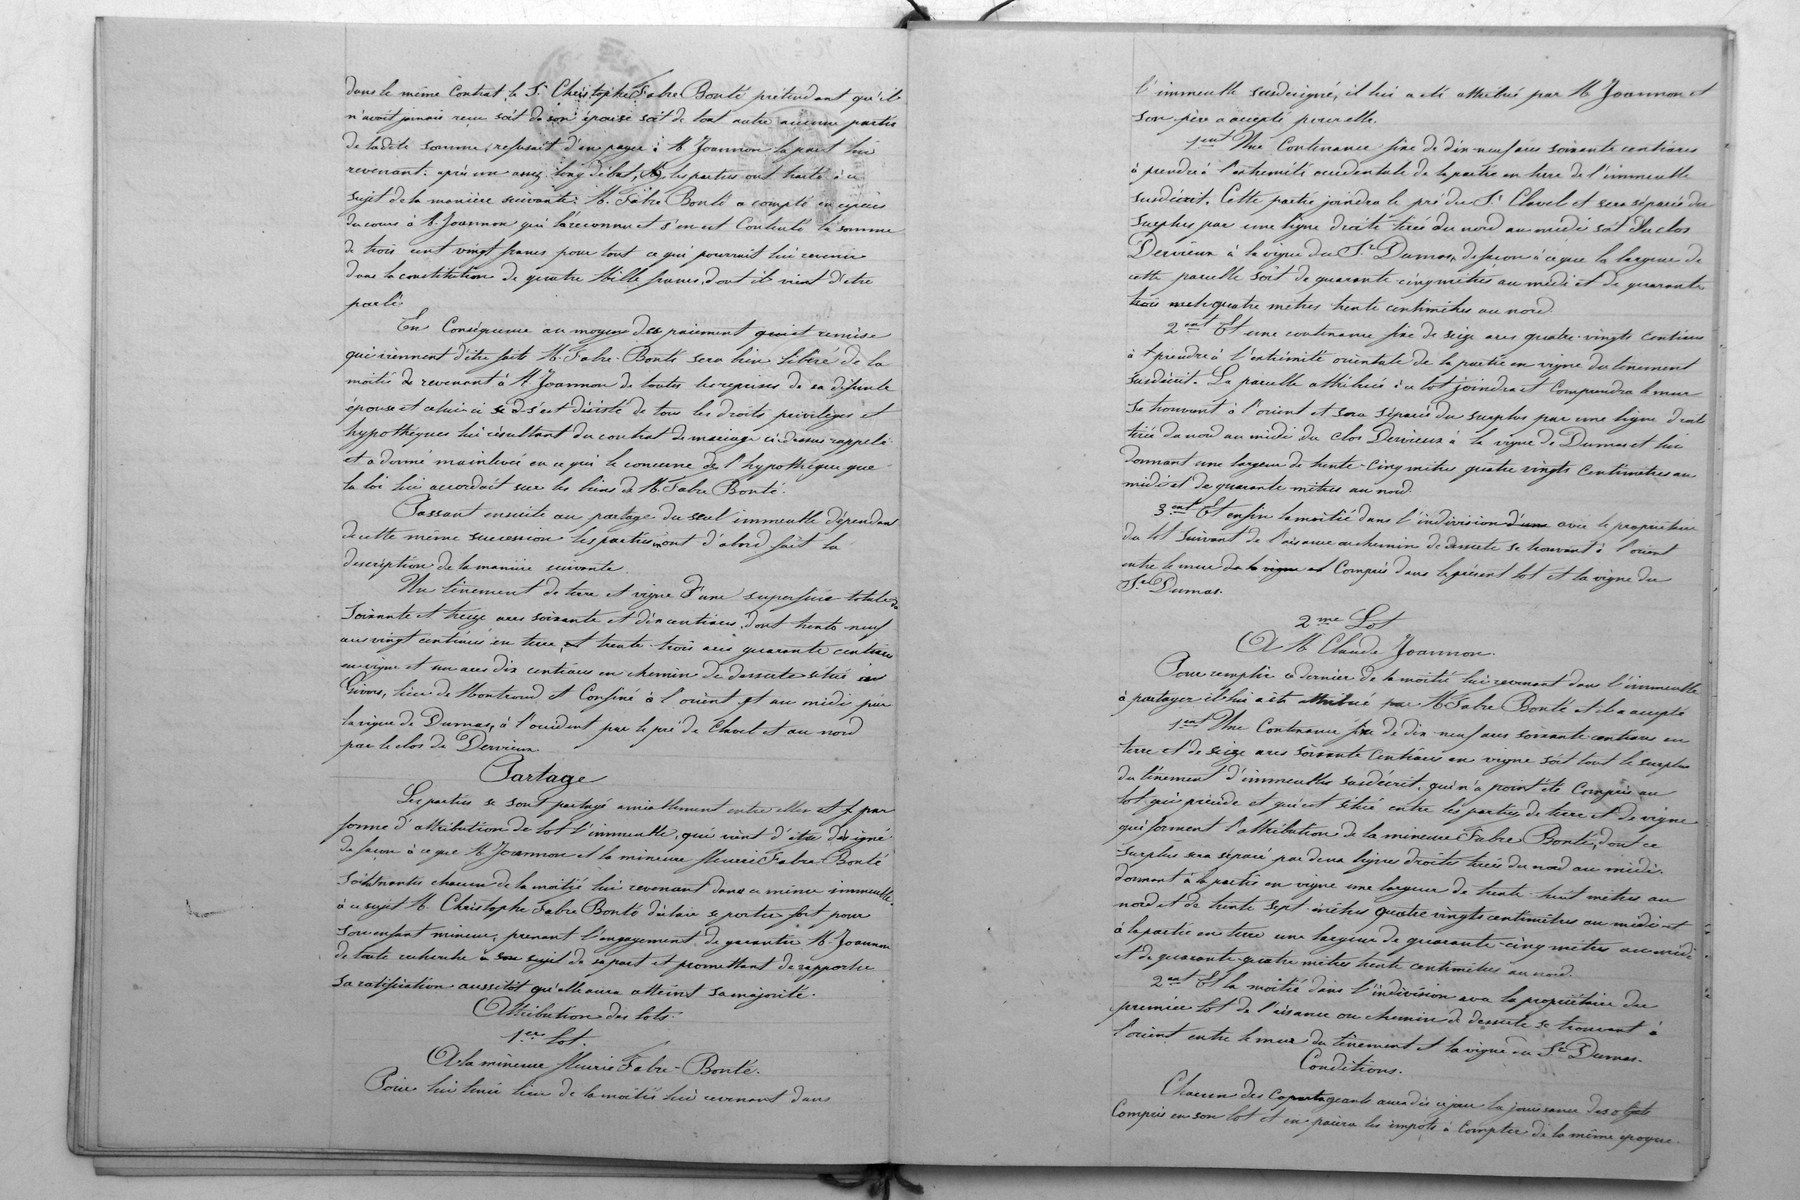 dans le même Contrat, le Sr Christophe Fabre Bonté prétendant qu'il
n'avoit jamais reçu soit de son épouse soit de tout autre aucune partie
de ladite somme, refusait d'en payer à Mr Joannon la part lui
revenant. après un assez long débat, les parties ont traité à ce
sujet de la manière suivante: M. Fabre Bonté a compté en espèces
du cours à Mr Joannon qui l'a reconnu et s'en est Contenté la somme
de trois cent vingt francs pour tout ce qui pourrait lui revenir
dans la constitution de quatre Mille francs, dont il vient d'être
parlé.
En Conséquence au moyen des paiement et remise
qui viennent d'être faits M. Fabre-Bonté sera bien libéré de la
moitié revenant à Mr Joannon de toutes les reprises de sa défunte
épouse et celui-ci s'est désisté de tous les droits privilèges et
hypothèques lui résultant du contrat de mariage ci-dessus rappelé
et a donné mainlevée en ce qui le concerne de l'hypothèque que
la loi lui accordait sur les biens de M. Fabre Bonté.
Passant ensuite au partage du seul immeuble dépendant
de cette même succession les parties en ont d'abord fait la
description de la manière suivante.
Un tènement de terre et vigne d'une superficie totale de
Soixante et treize ares soixante et dix centiares, dont trente neuf
ares vingt centiares en terre, trente-trois ares quarante centiares
en vigne et un are dix centiares en chemin de desserte situé à
Givors, lieu de Montrond et Confiné à l'orient et au midi par
la vigne de Dumas, à l'occident par le pré de Clavel et au nord
par le clos de Dervieux.
Partage
Les parties se sont partagé amiablement entre elles et par
forme d'attribution de lot l'immeuble, qui vient d'être désigné
de façon à ce que Mr Joannon et la mineure Fleurie Fabre-Bonté
soient nantis chacun de la moitié lui revenant dans ce même immeuble.
à ce sujet M. Christophe Fabre Bonté déclare se porter fort pour
son enfant mineure, prenant l'engagement de garantir M. Joannon
de toute recherche à ce sujet de sa part et promettant de rapporter
sa ratification aussitôt qu'elle aura atteint sa majorité.
Attribution des lots.
1er lot.
A la mineure Fleurie Fabre-Bonté.
Pour lui tenir lieu de la moitié lui revenant dans
l'immeuble susdésigné, il lui a été attribué par Mr Joannon et
son père a accepté pour elle.
1ent Une Contenance fixe de dix-neuf ares soixante centiares
à prendre à l'extrémité occidentale de la partie en terre de l'immeuble
susdécrit. Cette partie joindra le pré du Sr Clavel et sera séparée du
surplus par une ligne droite tirée du nord au midi soit du clos
Dervieux à la vigne du Sr Dumas, de façon à ce que la largeur de
cette parcelle soit de quarante cinq mètres au midi et de quarante
quatre mètres trente centimètres au nord.
2ent Et une contenance fixe de seize ares quatre-vingts centiares
à prendre à l'extrémité orientale de la partie en vigne du tènement
susdécrit. La parcelle attribuée à ce lot joindra et comprendra le mur
se trouvant à l'orient et sera séparée du surplus par une ligne droite
tirée du nord au midi du clos Dervieux à la vigne de Dumas et lui
donnant une largeur de trente-cinq mètres quatre vingts centimètres au
midi et de quarante mètres au nord.
3ent Et enfin la moitié dans l'indivision d'une avec le propriétaire
du lot suivant de l'aisance ou chemin de desserte se trouvant à l'orient
entre le mur de la vigne et Compris dans le présent lot et la vigne du
Sr Dumas.
2me Lot
A Mr Claude Joannon.
Pour remplir ce dernier de la moitié lui revenant dans l'immeuble
à partager il lui a été attribué par M Fabre Bonté et il a accepté
1ent Une Contenance fixe de dix-neuf ares soixante centiares en
terre et de seize ares soixante Centiares en vigne soit tout le surplus
du tènement d'immeubles susdécrit, qui n'a point été Compris au
lot qui précède et qui est situé entre les parties de terre et de vigne
qui forment l'attribution de la mineure Fabre Bonté, dont ce
surplus sera séparé par deux lignes droites tirées du nord au midi.
donnant à la partie en vigne une largeur de trente-huit mètres au
nord et de trente sept mètres quatre vingts centimètres au midi et
à la partie en terre une largeur de quarante-cinq mètres au midi
et de quarante-quatre mètres trente centimètres au nord.
2ent Et la moitié dans l'indivision avec la propriétaire du
premier lot de l'aisance ou chemin de desserte se trouvant à
l'orient entre le mur du tènement et la vigne du Sr Dumas.
Conditions.
Chacun des Copartageants aura dès ce jour la jouissance des objets
Compris en son lot et en paiera les impôts à Compter de la même époque.